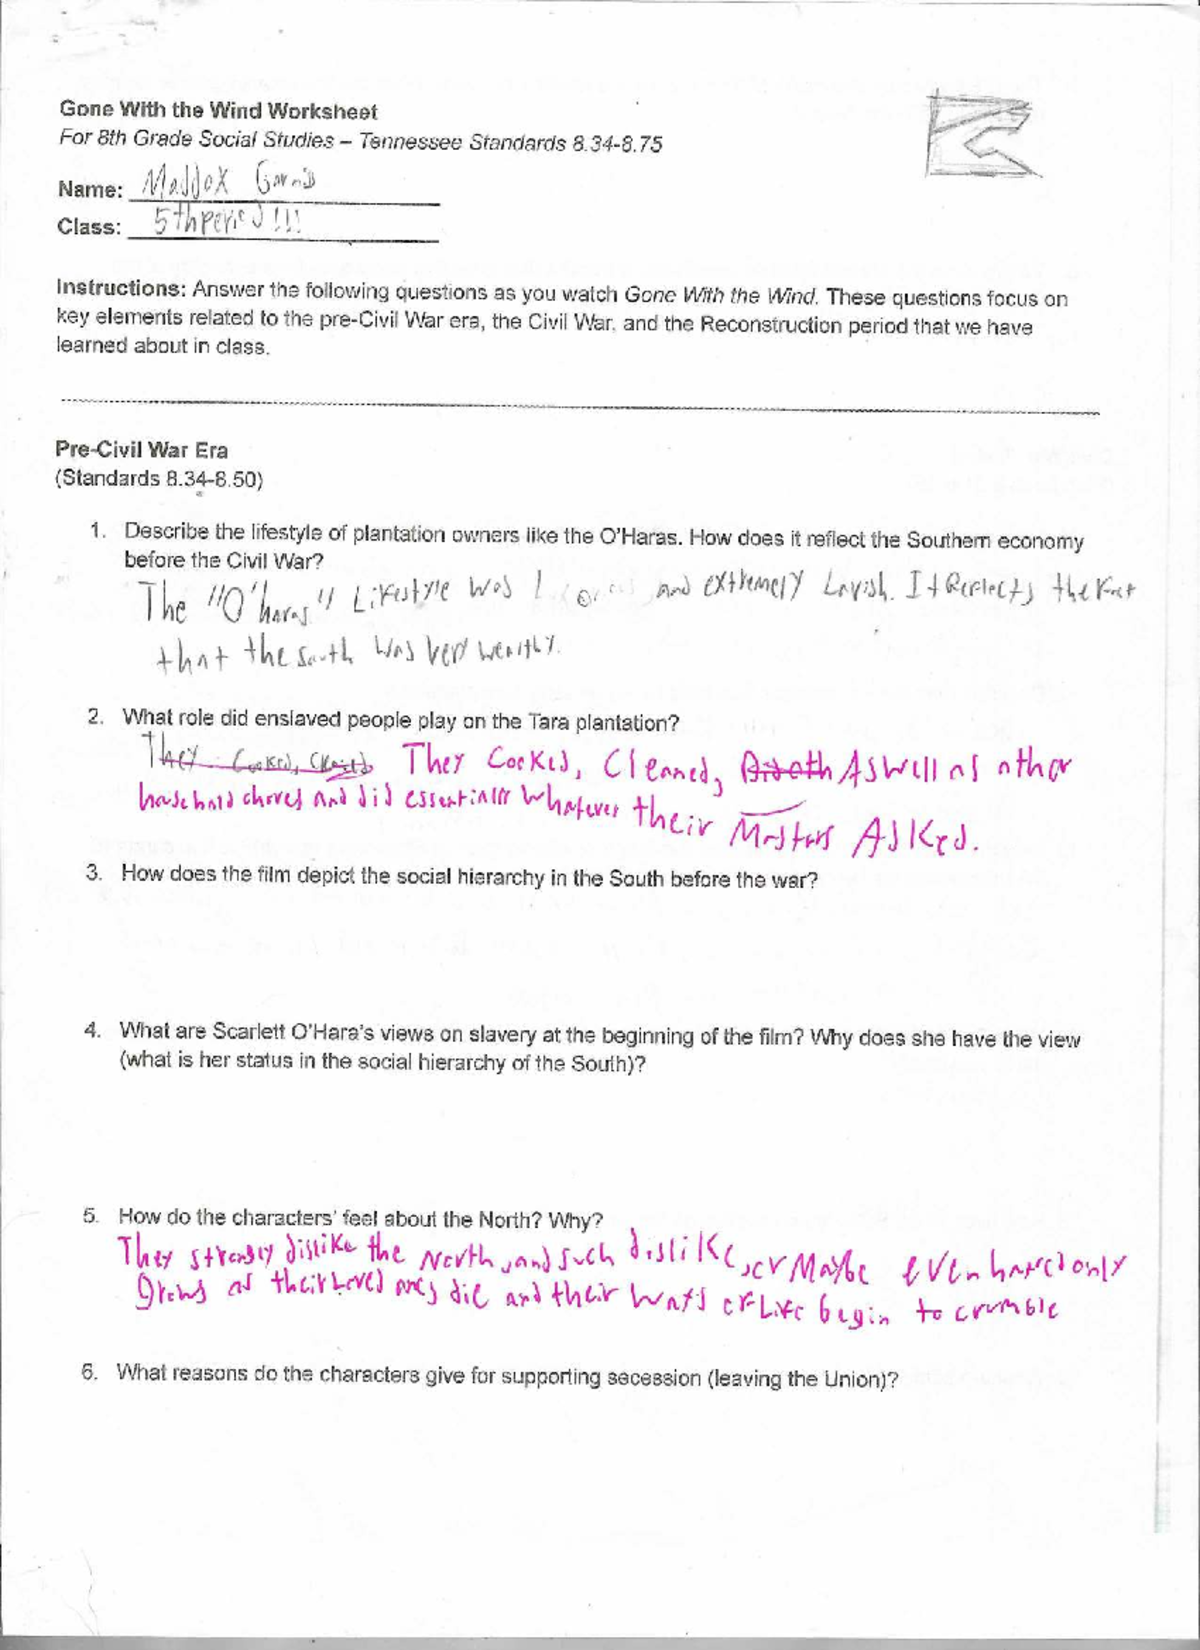 Gone With the Wind Worksheet
For 8th Grade Social Studies – Tennessee Standards 8.34-8.75
Name: Maddox
Class: 5th period!!!
Instructions: Answer the following questions as you watch Gone With the Wind. These questions focus on
key elements related to the pre-Civil War era, the Civil War, and the Reconstruction period that we have
learned about in class.
Pre-Civil War Era
(Standards 8.34-8.50)
1. Describe the lifestyle of plantation owners like the O'Haras. How does it reflect the Southern economy
before the Civil War?
The "O'haras" Lifestyle was and extremely Lavish. It Reflects the Fact
that the south was very wealthy.
2. What role did enslaved people play on the Tara plantation?
They Cooked, They Cooked, Cleaned, As well as other
household chores and did essentially whatever their Masters Asked.
3. How does the film depict the social hierarchy in the South before the war?
4. What are Scarlett O'Hara's views on slavery at the beginning of the film? Why does she have the view
(what is her status in the social hierarchy of the South)?
5. How do the characters' feel about the North? Why?
They strongly dislike the North, and such dislike, or Maybe even hatred only
Grows as their Loved ones die and their ways of Life begin to crumble
6. What reasons do the characters give for supporting secession (leaving the Union)?